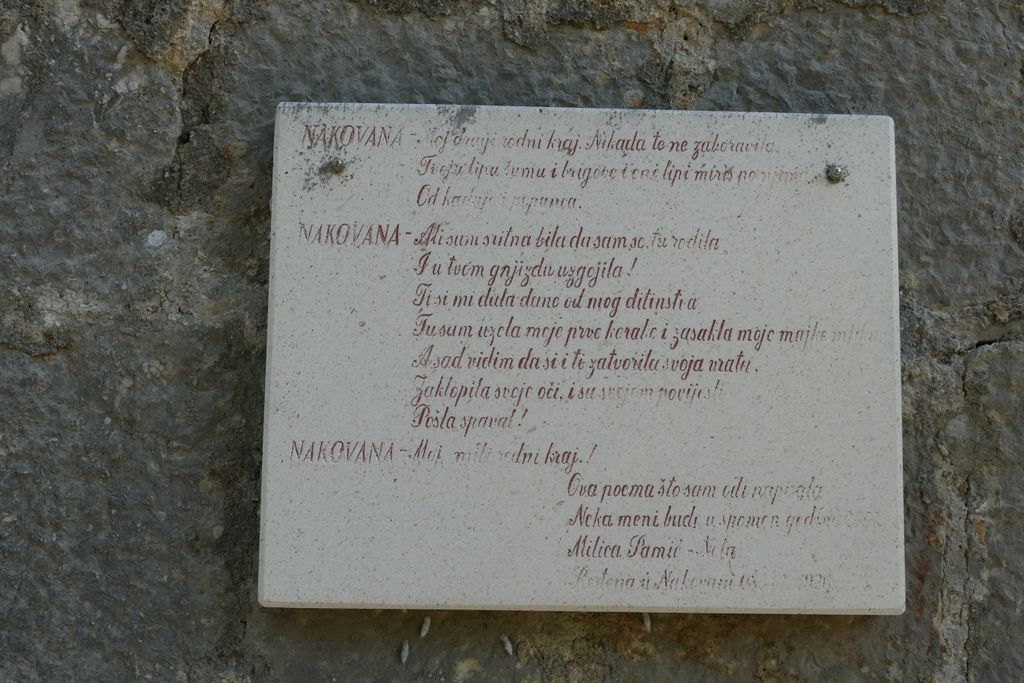 NAKOVANA - Moj dragi rodni kraj. Nikada te ne zaboravila.
Tvoju lipu šumu i brigove i one lipi miris po
Od kadulje i pupunca.
NAKOVANA - Ali sum sritna bila da sam se tu rodila
I u tvom gnjizdu uzgojila!
Ti si mi dala dane od mog ditinstva
Tu sum uzela moje prve korake i zasakla moje majke
A sad vidim da si i ti zatvorila svoja vrata,
Zaklopila svoje oči, i sa svojom povijesti
Pošla spavat!
NAKOVANA - Moj mili rodni kraj!
Ova poema što sam odi napisala
Neka meni bude u spomen godine
Milica Pamić - Nela
Rođena u Nakovani